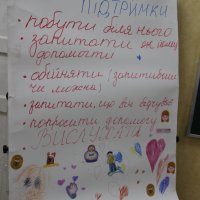 ПІДТРИМКИ
• побути біля нього
• запитати як можу
допомогти
• обійняти (запитавши
чи можна)
• запитати, що він відчуває
• попросити допомогу
ВИСЛУХАТИ